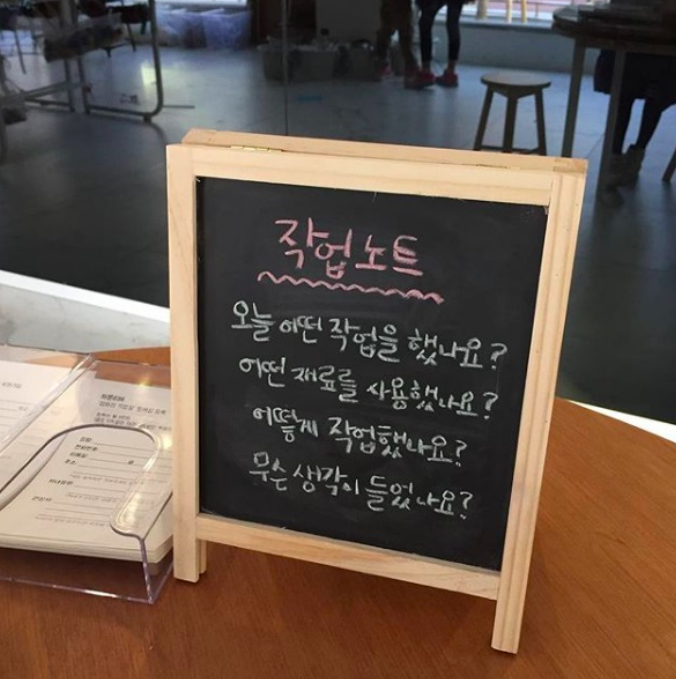 작업노트
오늘 어떤 작업을 했나요?
어떤 재료를 사용했나요?
어떻게 작업했나요?
무슨 생각이 들었나요?